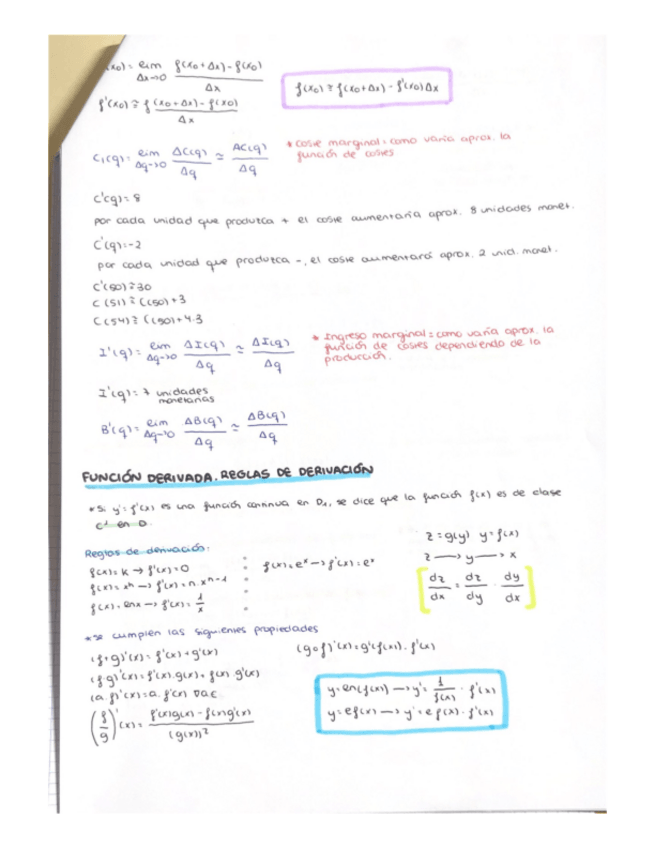 (x₀) = lim Δx→0 f(x₀+Δx) - f(x₀) / Δx
f'(x₀) ≅ f(x₀+Δx) - f(x₀) / Δx
f(x₀) ≅ f(x₀+Δx) - f'(x₀)Δx
C₁(q) = lim Δq→0 ΔC(q) / Δq ≅ ΔC(q) / Δq
* Coste marginal = como varía aprox. la
función de costes
C'(q) = 8
por cada unidad que produzca + el coste aumentaría aprox. 8 unidades monet.
C'(q) = -2
por cada unidad que produzca -, el coste aumentará aprox. 2 unid. monet.
C'(50) ≅ 30
C(51) ≅ C(50) + 3
C(54) ≅ C(50) + 4·3
I'(q) = lim Δq→0 ΔI(q) / Δq ≅ ΔI(q) / Δq
* Ingreso marginal = como varía aprox. la
función de costes dependiendo de la
producción.
I'(q) = 7 unidades
monetarias
B'(q) = lim Δq→0 ΔB(q) / Δq ≅ ΔB(q) / Δq
FUNCIÓN DERIVADA. REGLAS DE DERIVACIÓN
* Si y' = f'(x) es una función continua en D₁, se dice que la función f(x) es de clase
C¹ en D.
Reglas de derivación:
f(x) = K → f'(x) = 0
f(x) = xⁿ → f'(x) = n·xⁿ⁻¹
f(x) = lnx → f'(x) = 1/x
* f(x) = eˣ → f'(x) = eˣ
z = g(y) y = f(x)
z → y → x
dz/dx = dz/dy · dy/dx
* se cumplen las siguientes propiedades
(f+g)'(x) = f'(x) + g'(x)
(f·g)'(x) = f'(x)·g(x) + f(x)·g'(x)
(a·f)'(x) = a·f'(x) ∀a∈
(f/g)'(x) = f'(x)g(x) - f(x)g'(x) / (g(x))²
(g∘f)'(x) = g'(f(x))·f'(x)
y = ln(f(x)) → y' = 1/f(x) · f'(x)
y = e f(x) → y' = e f(x) · f'(x)